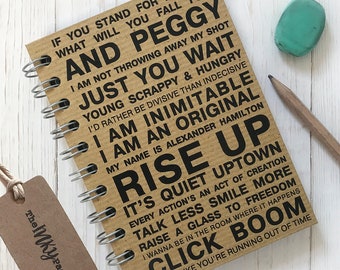 IF YOU STAND FOR
WHAT WILL YOU FALL
AND PEGGY
I AM NOT THROWING AWAY MY SHOT
JUST YOU WAIT
YOUNG SCRAPPY & HUNGRY
I'D RATHER BE DIVISIVE THAN INDECISIVE
I AM INIMITABLE
I AM AN ORIGINAL
MY NAME IS ALEXANDER HAMILTON
RISE UP
IT'S QUIET UPTOWN
EVERY ACTION'S AN ACT OF CREATION
TALK LESS SMILE MORE
RAISE A GLASS TO FREEDOM
I WANNA BE IN THE ROOM WHERE IT HAPPENS
CLICK BOOM
LIKE YOU'RE RUNNING OUT OF TIME
The
INKY